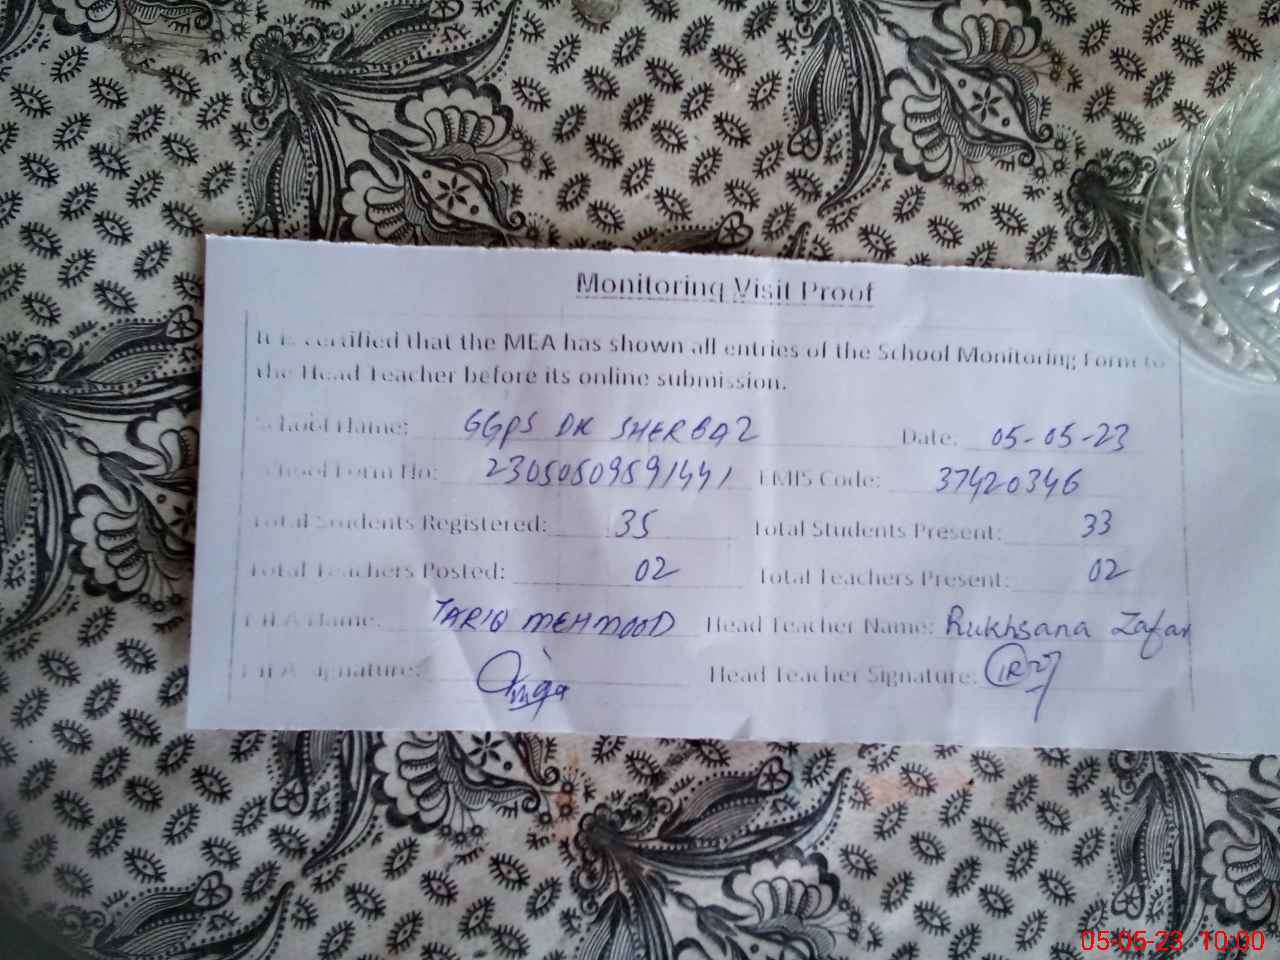 Monitoring Visit Proof
It is certified that the MEA has shown all entries of the School Monitoring Form to
the Head Teacher before its online submission.
School Name: GGPS DK SHERBAZ Date: 05-05-23
School Form No: 23050509591441 EMIS Code: 37420346
Total Students Registered: 35 Total Students Present: 33
Total Teachers Posted: 02 Total Teachers Present: 02
MEA Name: TARIQ MEHMOOD Head Teacher Name: Rukhsana Zafar
MEA Signature: Head Teacher Signature:
05-05-23 10:00